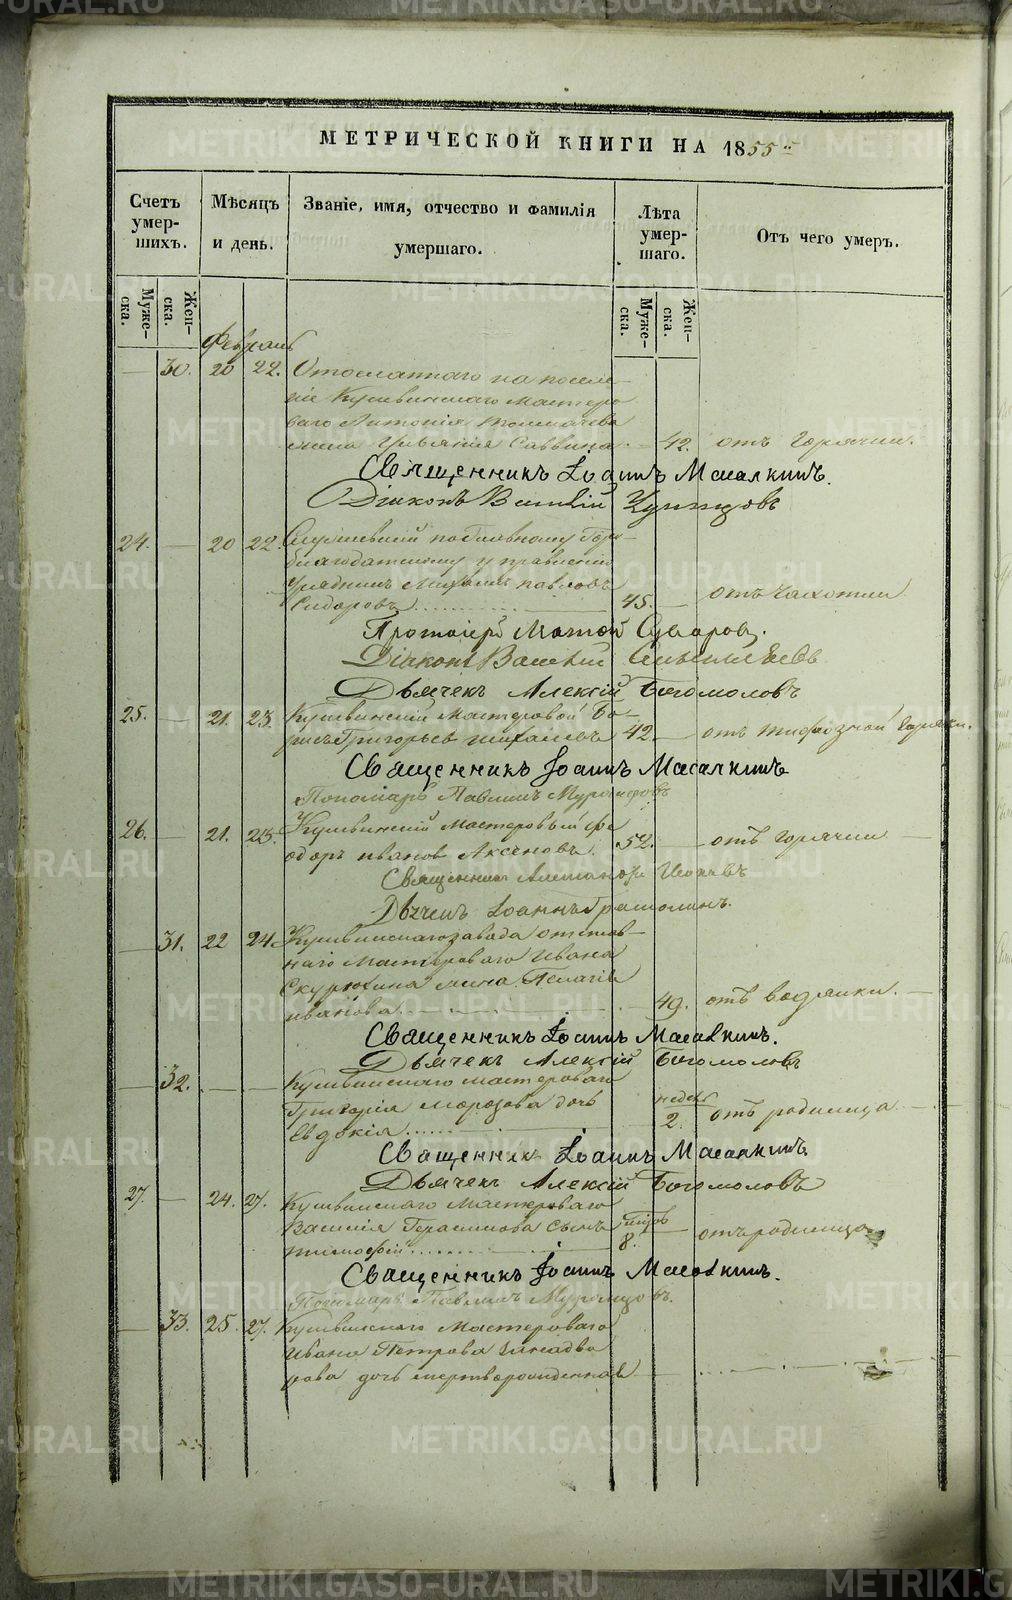 МЕТРИЧЕСКОЙ КНИГИ НА 1855
Счетъ умер- шихъ. Мѣсяцъ и день. Званіе, имя, отчество и фамилія умершаго. Лѣта умер- шаго. Отъ чего умеръ.
Муже- ска. Жен- ска. Муже- ска. Жен- ска.
Февраль
30. 20 22. Отосланнаго на поселе-
ніе Кушвинскаго мастеро
ваго Антонія
жена Саввина. 42. отъ горячки.
Священникъ Іоаннъ Масалкинъ.
Діаконъ Василій
24. 20 22. Служившій по
благодатскому управленію
Урядникъ Павловъ
Сидоровъ 45. отъ чахотки
Протоіерей
Діаконъ Василій
Дьячекъ Алексій Богомоловъ
25. 21. 23. Кушвинскій мастеровой Бо-
рисъ Григорьевъ 42. отъ тифозной горячки.
Священникъ Іоаннъ Масалкинъ
Пономарь Павлинъ
26. 21. 23. Кушвинскій мастеровый Фе
одоръ Ивановъ Аксеновъ. 52. отъ горячки
Священникъ Александръ
Дьячекъ Іоаннъ
31. 22 24. Кушвинскаго завода отстав-
наго мастероваго Ивана
жена Пелагія
Иванова. 49. отъ водянки.
Священникъ Іоаннъ Масалкинъ.
Дьячекъ Алексій Богомоловъ
32. Кушвинскаго мастероваго
Григорія Морозова дочь
Евдокія недѣль 2. отъ родимца.
Священникъ Іоаннъ Масалкинъ
Дьячекъ Алексій Богомоловъ
27. 24. 27. Кушвинскаго мастероваго
Василія Герасимова сынъ
Тимофій 8. отъ родимца
Священникъ Іоаннъ Масалкинъ.
Пономарь Павлинъ
33. 25. 27. Кушвинскаго мастероваго
Ивана Петрова
дочь мертворожденная
METRIKI.GASO-URAL.RU